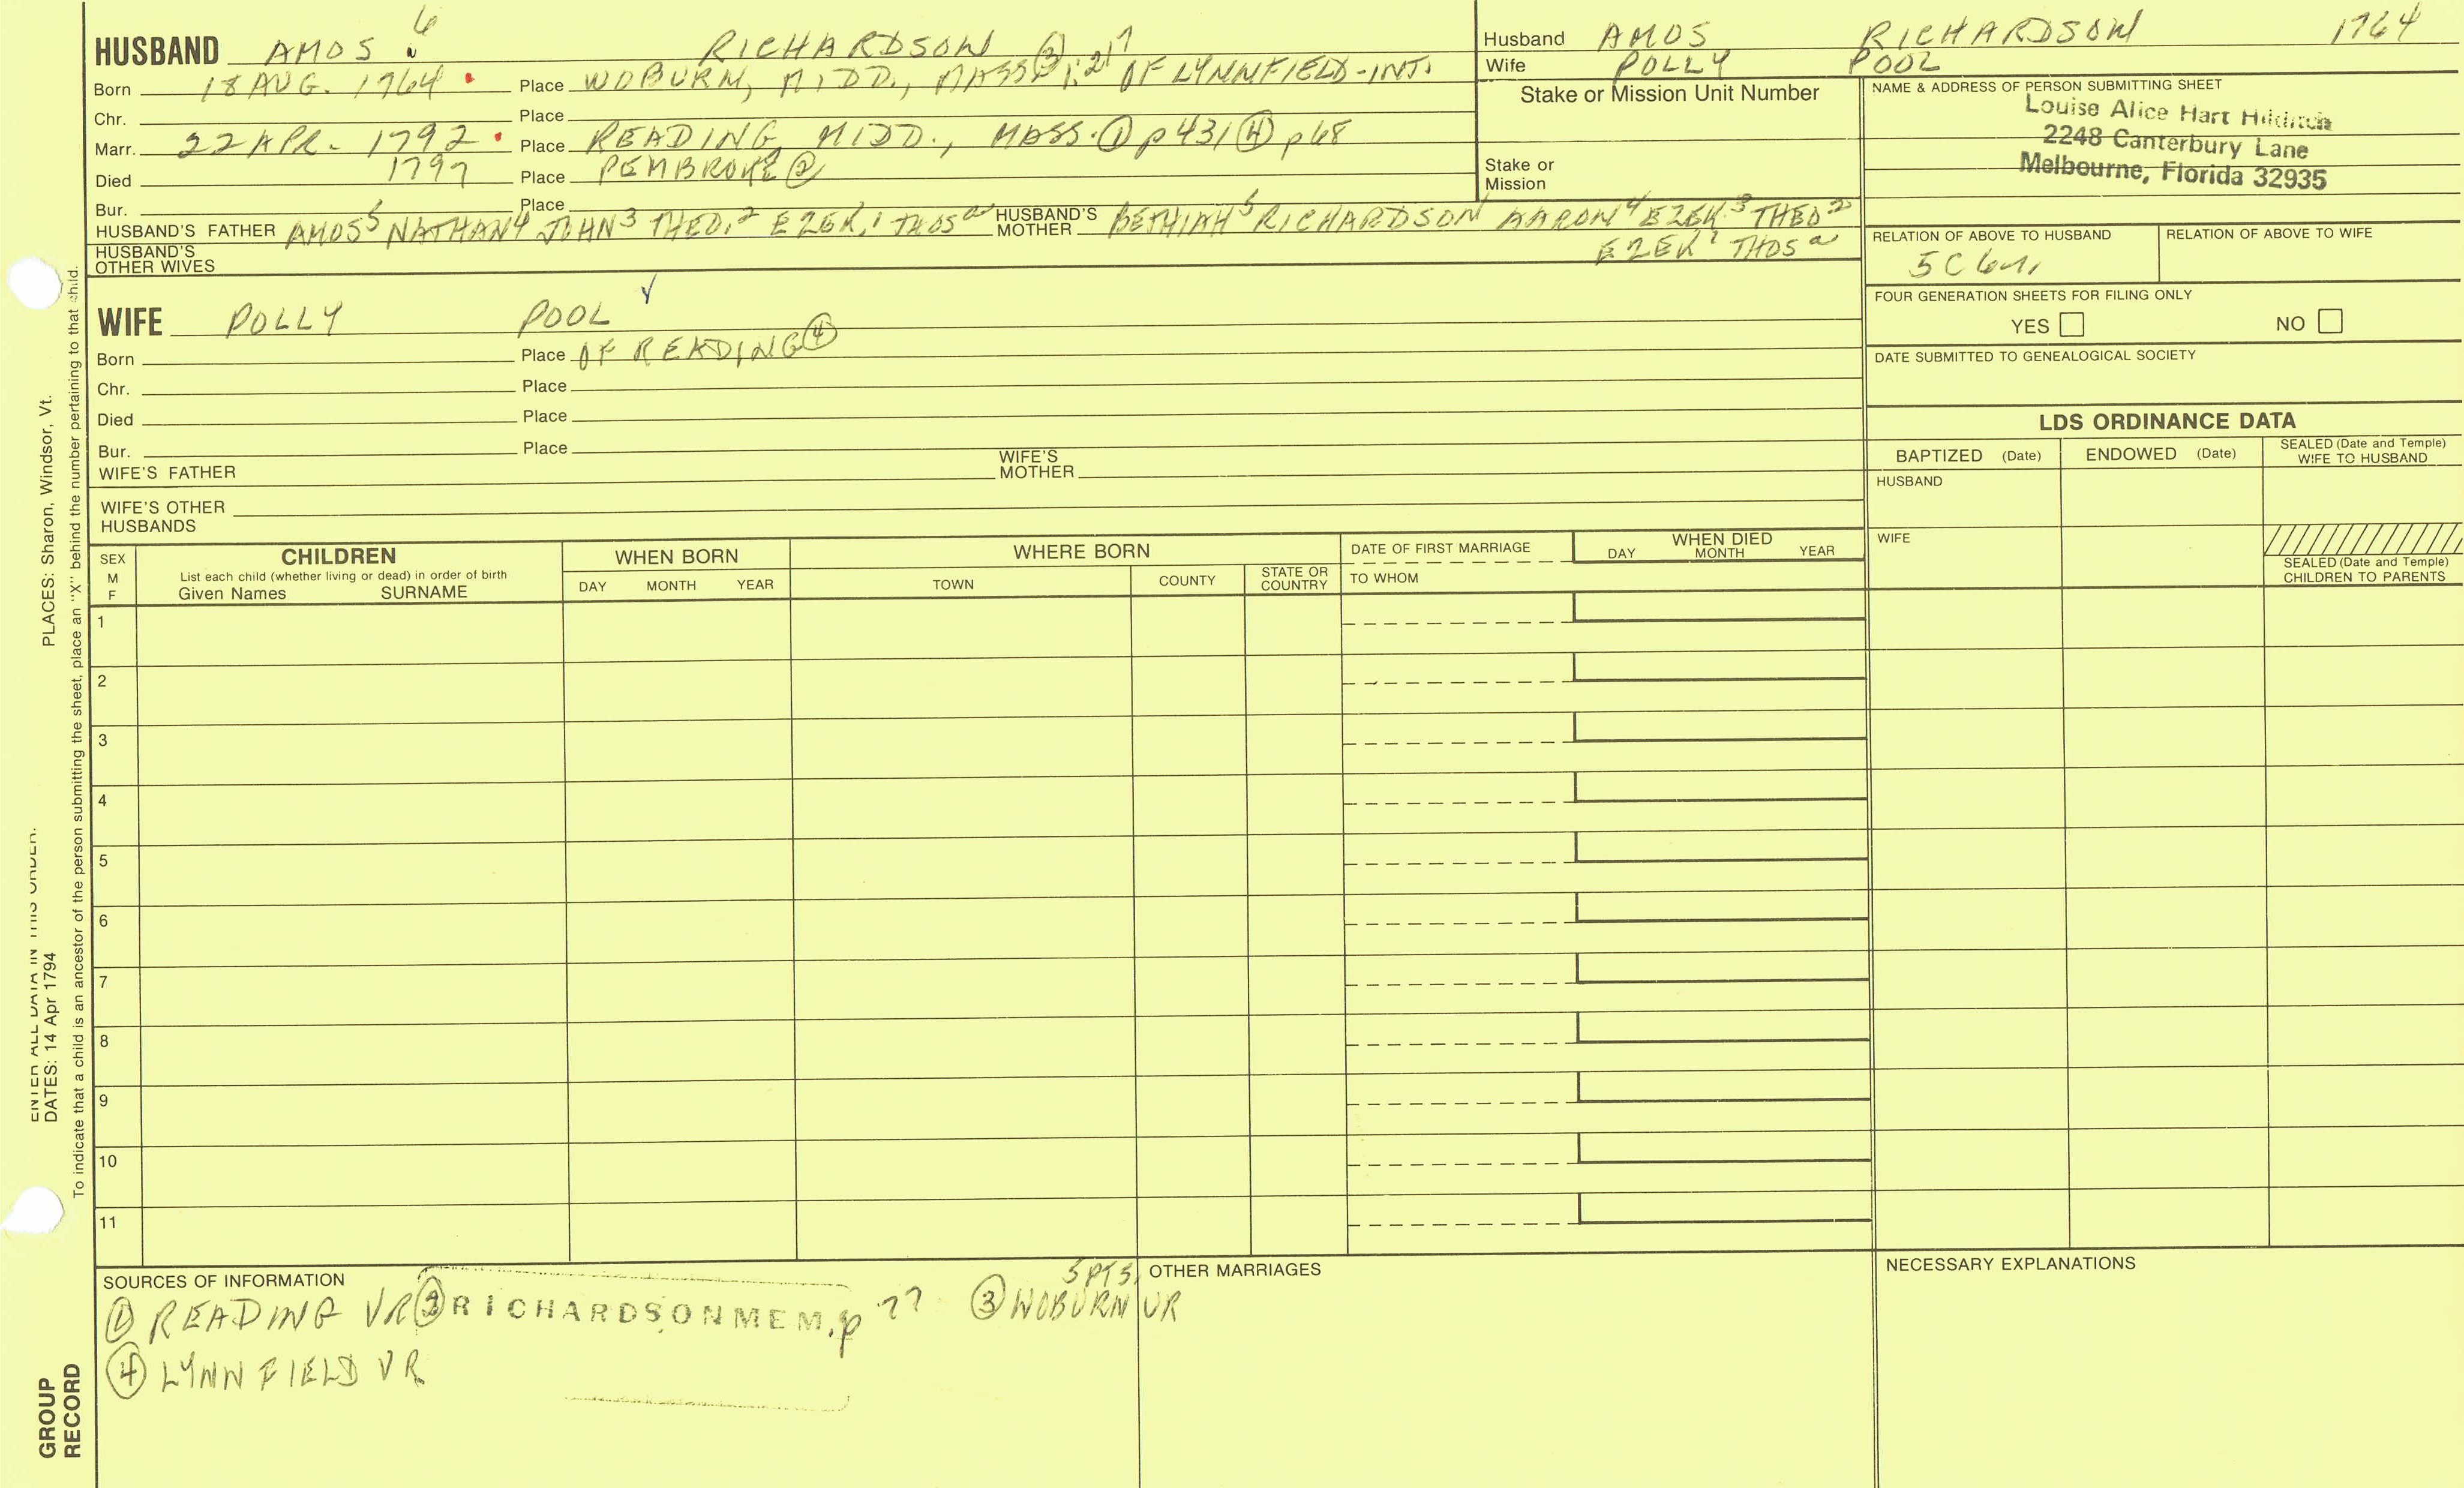 HUSBAND AMOS 6 RICHARDSON
Born 18 AUG. 1764 Place WOBURN, MIDD., MASS ③ 1:217 OF LYNNFIELD-INT.
Chr. Place
Marr. 22 APR. 1792 Place READING, MIDD., MASS. ① p431 ④ p68
Died 1797 Place PEMBROKE ②
Bur. Place
HUSBAND'S FATHER AMOS5 NATHAN4 JOHN3 THEO.2 EZEK.1 THOSa HUSBAND'S MOTHER BETHIAH5 RICHARDSON AARON4 EZEK.3 THEO2
EZEK1 THOSa
HUSBAND'S OTHER WIVES
WIFE POLLY POOL
Born Place OF READING ④
Chr. Place
Died Place
Bur. Place
WIFE'S FATHER WIFE'S MOTHER
WIFE'S OTHER HUSBANDS
Husband AMOS RICHARDSON 1764
Wife POLLY POOL
Stake or Mission Unit Number
Stake or
Mission
NAME & ADDRESS OF PERSON SUBMITTING SHEET
Louise Alice Hart Hilditch
2248 Canterbury Lane
Melbourne, Florida 32935
RELATION OF ABOVE TO HUSBAND RELATION OF ABOVE TO WIFE
5C
FOUR GENERATION SHEETS FOR FILING ONLY
YES NO
DATE SUBMITTED TO GENEALOGICAL SOCIETY
LDS ORDINANCE DATA
BAPTIZED (Date) ENDOWED (Date) SEALED (Date and Temple) WIFE TO HUSBAND
HUSBAND
WIFE
SEALED (Date and Temple)
CHILDREN TO PARENTS
SEX
M
F
CHILDREN
List each child (whether living or dead) in order of birth
Given Names SURNAME
WHEN BORN
DAY MONTH YEAR
WHERE BORN
TOWN COUNTY STATE OR COUNTRY
DATE OF FIRST MARRIAGE
TO WHOM
WHEN DIED
DAY MONTH YEAR
1
2
3
4
5
6
7
8
9
10
11
SOURCES OF INFORMATION
① READING VR ② RICHARDSON MEM. p 77 ③ WOBURN VR 5 PTS.
④ LYNNFIELD VR
OTHER MARRIAGES
NECESSARY EXPLANATIONS
ENTER ALL DATA IN THIS ORDER:
DATES: 14 Apr 1794 PLACES: Sharon, Windsor, Vt.
To indicate that a child is an ancestor of the person submitting the sheet, place an "X" behind the number pertaining to that child.
GROUP
RECORD